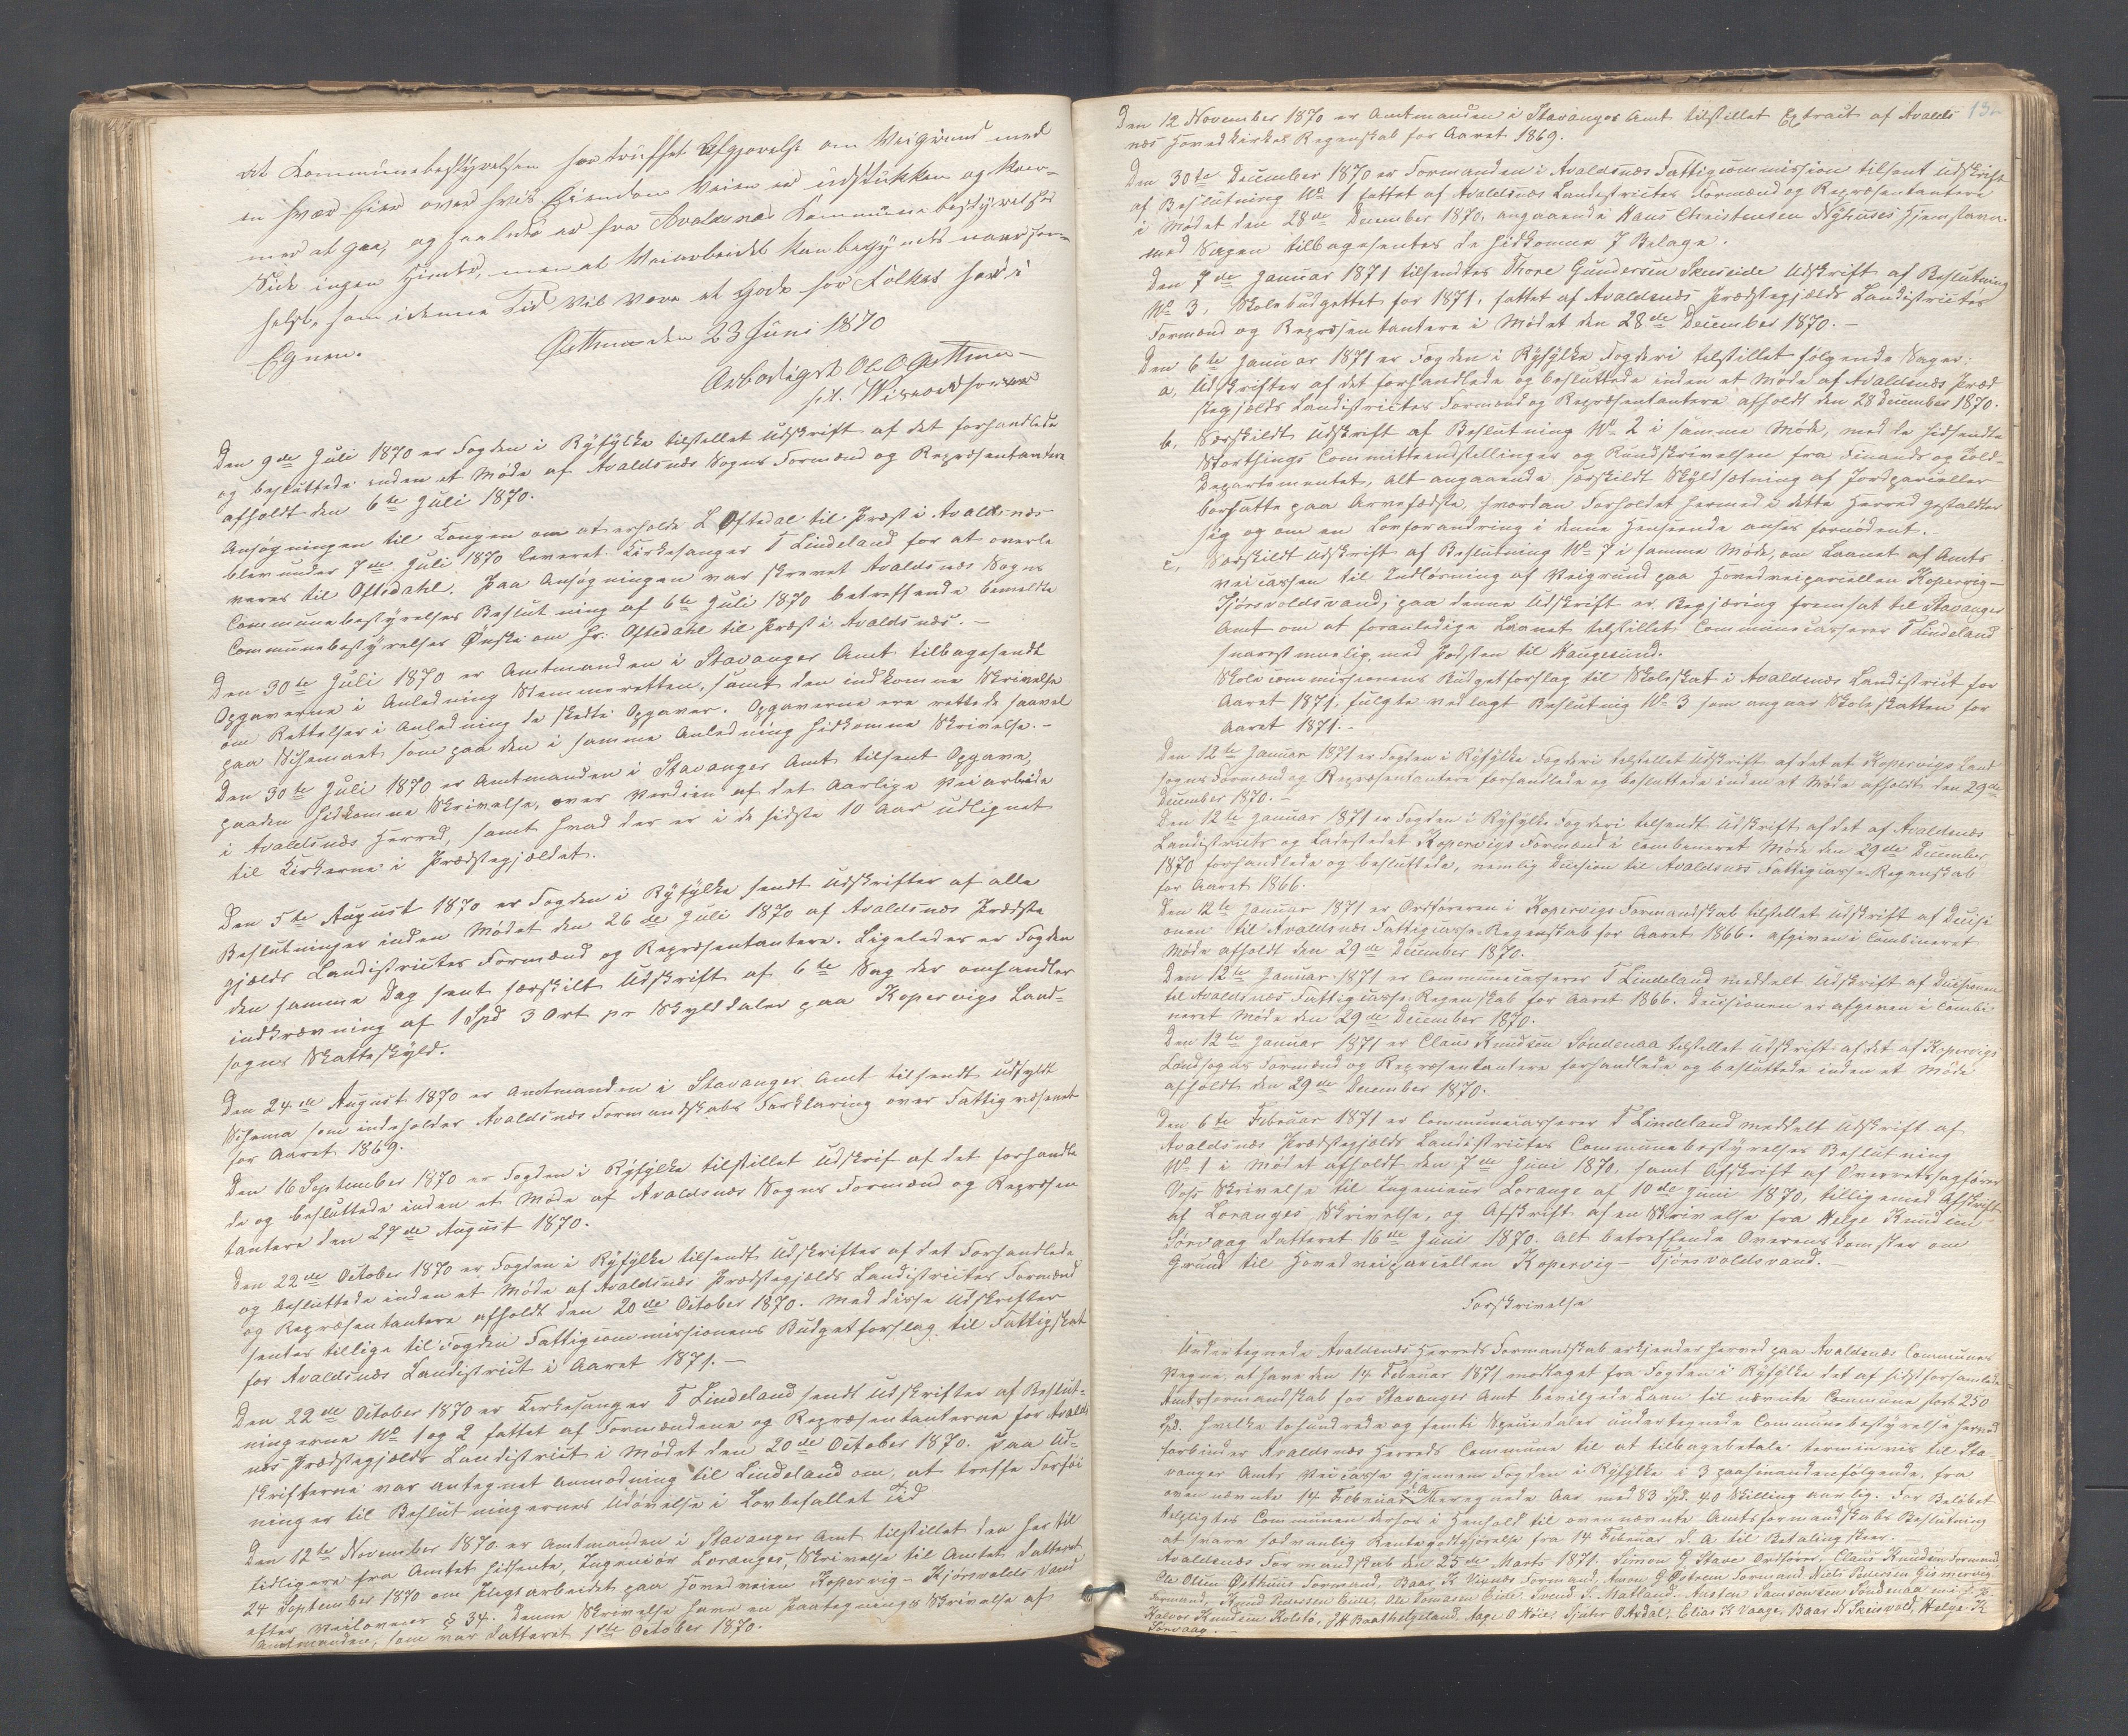 at Kommunebestyrelsen har truffet Afgjørelse om Veigrund med
en hver Eier over hvis Eiendom Veien er udstukken og kom-
mer at gaa, og saaledes er fra Avaldsnes Kommunebestyrelses
Side ingen Hinder, men at Veiarbeidet kan begyndes naarsom-
helst, som i denne Tid vil være et Gode for Folket her i
Egnen.
den 23 Juni 1870
Ærbødigst Ole O
p.t. Viseordfører
Den 9de Juli 1870 er Fogden i Ryfylke tilstillet Udskrift af det forhandlede
og besluttede inden et Møde af Avaldsnæs Sogns Formænd og Repræsentantere
afholdt den 6te Juli 1870.
Ansøgningen til Kongen om at erholde L Oftedal til Præst i Avaldsnæs
blev under 7de Juli 1870 leveret Kirkesanger T Lindeland for at overle
veres til Oftedahl. Paa Ansøgningen var skrevet Avaldsnæs Sogns
Communebestyrelses Beslutning af 6te Juli 1870 betreffende bemeldte
Communebestyrelses Ønske om Hr. Oftedahl til Præst i Avaldsnæs. –
Den 30te Juli 1870 er Amtmanden i Stavanger Amt tilbagesendt
Opgaverne i Anledning Stemmeretten, samt den indkomne Skrivelse
om Rettelser i Anledning de skedte Opgaver. Opgaverne ere rettede saavel
paa Schemaet som paa den i samme Anledning hidkomne Skrivelse. –
Den 30te Juli 1870 er Amtmanden i Stavanger Amt tilsent Opgave,
paaden hidkomne Skrivelse, over Verdien af det Aarlige Veiarbeide
i Avaldsnæs Herred, samt hvad der er i de sidste 10 Aar udlignet
til Kirkerne i Prædstegjældet.
Den 5te August 1870 er Fogden i Ryfylke sendt Udskrifter af alle
Beslutninger inden Mødet den 26de Juli 1870 af Avaldsnæs Prædste
gjælds Landistrictes Formænd og Repræsentantere. Ligeledes er Fogden
den samme Dag sent særskilt Udskrift af 6te Sag der omhandler
indkrævning af 1 Spd 3 Ort pr Skylddaler paa Kopervigs Land-
sogns Skatteskyld.
Den 24de August 1870 er Amtmanden i Stavanger Amt tilsendt udfyldt
Schema som indeholder Avaldsnæs Formandskabs Forklaring over Fattigvæsenet
for Aaret 1869.
Den 16 September 1870 er Fogden i Ryfylke tilstillet Udskrif af det forhandle
de og besluttede inden et Møde af Avaldsnæs Sogns Formænd og Repræsen
tantere den 27de August 1870.
Den 22de October 1870 er Fogden i Ryfylke tilsendt Udskrifter af det Forhandlede
og besluttede inden et Møde af Avaldsnæs Prædstegjælds Landistrictes Formænd
og Repræsentantere afholdt den 20de October 1870. Med disse Udskrifter
sentes tillige til Fogden Fattigcommissionens Budgetforslag til Fattigskat
for Avaldsnæs Landistrict i Aaret 1871. –
Den 22de October 1870 er Kirkesanger T Lindeland sendt Udskrifter af Beslut-
ningerne No 1 og 2 fattet af Formændene og Repræsentanterne for Avalds
næs Prædstegjælds Landistrict i Mødet den 20de October 1870. Paa Ud-
skrifterne var antegnet Anmodning til Lindeland om, at treffe Forføi
ninger til Beslutningernes Udøvelse i Lovbefallet Tid
Den 12te November 1870 er Amtmanden i Stavanger Amt tilstillet den her til
tidligere fra Amtet hidsente, Ingeniør Loranges, Skrivelse til Amtet datteret
24 September 1870 om Pligtarbeidet paa Hovedveien Kopervig – Kjørsvolds Vand
efter Veilovens § 34. Denne Skrivelse have en Paategnings Skrivelse af
Amtmanden, som var datteret 1ste October 1870.
Den 12 November 1870 er Amtmanden i Stavanger Amt tilstillet Extrait af Avalds
næs Hovedkirkes Regenskab for Aaret 1869.
Den 30te December 1870 er Formanden i Avaldsnæs Fattigcommission tilsent Udskrift
af Beslutning No 1 fattet af Avaldsnæs Landistrictes Formænd og Repræsentantere
i Mødet den 28de December 1870, angaaende Hans Christensen Nyhuses Hjemstavn.
med Sagen tilbagesentes de hidkomne 7 Belage.
Den 7de Januar 1871 tilsendtes Thore Gundersen Skeiseide Udskrift af Beslutning
No 3, Skolebudgettet for 1871, fattet af Avaldsnæs Prædstegjælds Landistrictes
Formænd og Repræsentantere i Mødet den 28de December 1870. –
Den 6te Januar 1871 er Fogden i Ryfylke Fogderi tilstillet følgende Sager:
a, Udskrifter af det forhandlede og besluttede inden et Møde af Avaldsnæs Præd
stegjælds Landistrictes Formænd og Repræsentantere afholdt den 28 December 1870.
b, Særskildt Udskrift af Beslutning No 2 i samme Møde, med de hidsendte
Storthings Committeeindstillinger og Rundskrivelsen fra Finands og Told-
Departementet, Alt angaaende særskildt Skyldsætning af Jordparceller
borsatte paa Arvefæste, hvordan Forholdet hermed i dette Herred gestaldter
sig og om en Lovforandring i denne Henseende anses fornødent.
c, Særskildt Udskrift af Beslutning No 7 i samme Møde, om Laanet af Amts
veicassen til Indløsning af Veigrund paa Hovedveiparcellen Kopervig –
Tjørsvoldsvand; paa denne Udskrift er Begjæring fremsat til Stavanger
Amt om at foranledige Laanet tilstillet Communecasserer T Lindeland
snarest muelig, med Posten til Haugesund.
Skolecommissionens Budgetforslag til Skoleskat i Avaldsnæs Landistrict for
Aaret 1871, fulgte vedlagt Beslutnig No 3 som angaar Skoleskatten for
Aaret 1871. –
Den 12te Januar 1871 er Fogden i Ryfylke Fogderi tilstillet Udskrift af det at Kopervigs Land
sogns Formænd og Repræsentantere forhandlede og besluttede inden et Møde afholdt den 29de
December 1870. –
Den 12te Januar 1871 er Fogden i Ryfylke Fogderi tilsendt Udskrift af det af Avaldsnæs
Landistricts og Ladestedet Kopervigs Formænd i combineret Møde den 29de December
1870 forhandlede og besluttede, nemlig Decision til Avaldsnæs Fattigcasse-Regenskab
for Aaret 1866.
Den 12te Januar 1871 er Ordføreren i Kopervigs Formandskab tilstillet Udskrift af Decisi
onen til Avaldsnæs Fattigcasse-Regenskab for Aaret 1866. afgiven i Combineret
Møde afholdt den 29de December 1870.
Den 12te Januar 1871 er Communecasserer T Lindeland meddelt Udskrift af Decisionen
til Avaldsnæs Fattigcasse-Regenskab for Aaret 1866. Decisionen er afgiven i Combi
neret Møde den 29de December 1870.
Den 12te Januar 1871 er Claus Knudsen Søndenaa tilstillet Udskrift af det af Kopervigs
Landsogns Formænd og Repræsentantere forhandlede og besluttede inden et Møde
afholdt den 29de December 1870.
Den 6te Februar 1871 er Communecasserer T Lindeland meddelt Udskrift af
Avaldsnæs Prædstegjælds Landistrictes Communebestyrelses Beslutning
No 1 i Mødet afholdt den 7de Juni 1870, samt Afskrift af Overretssagfører
Voss Skrivelse til Ingenieur Lorange af 10de Juni 1870, tilligemed Afskrift
af Loranges Skrivelse, og Afskrift af en Skrivelse fra Helge Knudsen
Sørvaag datteret 16de Juni 1870. Alt betreffende Overenskomster om
Grund til Hovedveiparcellen Kopervig – Tjørsvoldsvand. –
Forskrivelse
Undertegnede Avaldsnæs Herreds Formandskab erkjender herved paa Avaldsnæs Communes
Vegne, at have den 14 Februar 1871 modtaget fra Fogden i Ryfylke det af sidstforsamlede
Amtsformandskab for Stavanger Amt bevilgede Laan til nævnte Commune stort 250
Spd. hvilke tohundrede og femti Speciedaler undertegnede Communebestyrelse herved
forbinder Avaldsnæs Herreds Commune til at tilbagebetale terminvis til Sta-
vanger Amts Veicasse gjennem Fogden i Ryfylke i 3 paahinandenfølgende, fra
ovennævnte 14 Februar d A beregnede Aar med 83 Spd. 40 Skilling aarlig. For Beløbet
tilpligtes Communen derhos i Henhold til ovennævnte Amtsformandskabs Beslutning
at svare sædvanlig Rentegodtgjørelse fra 14 Februar d. A til Betaling skeer.
Avaldsnæs Formandskab den 25de Marts 1871. Simon G Stave Ordfører, Claus Knudsen Formand
Ole Olsen Østhuus Formand, Baar K Viknæs Formand, Amon G Østrem Formand Niels Pedersen Gismervig
Formand, Knud Pedersen Eide, Ole Tomasen Eide, Svend S. Matland, Austen Samsonsen Søndenaa m i P
Halvor Knudsen Kolstø, J H Baathelgeland, Aage O Høie, Sjuhr O Ardal, Elias K Vaage, Baar N Skeisvold, Helge K
Sørvaag. –